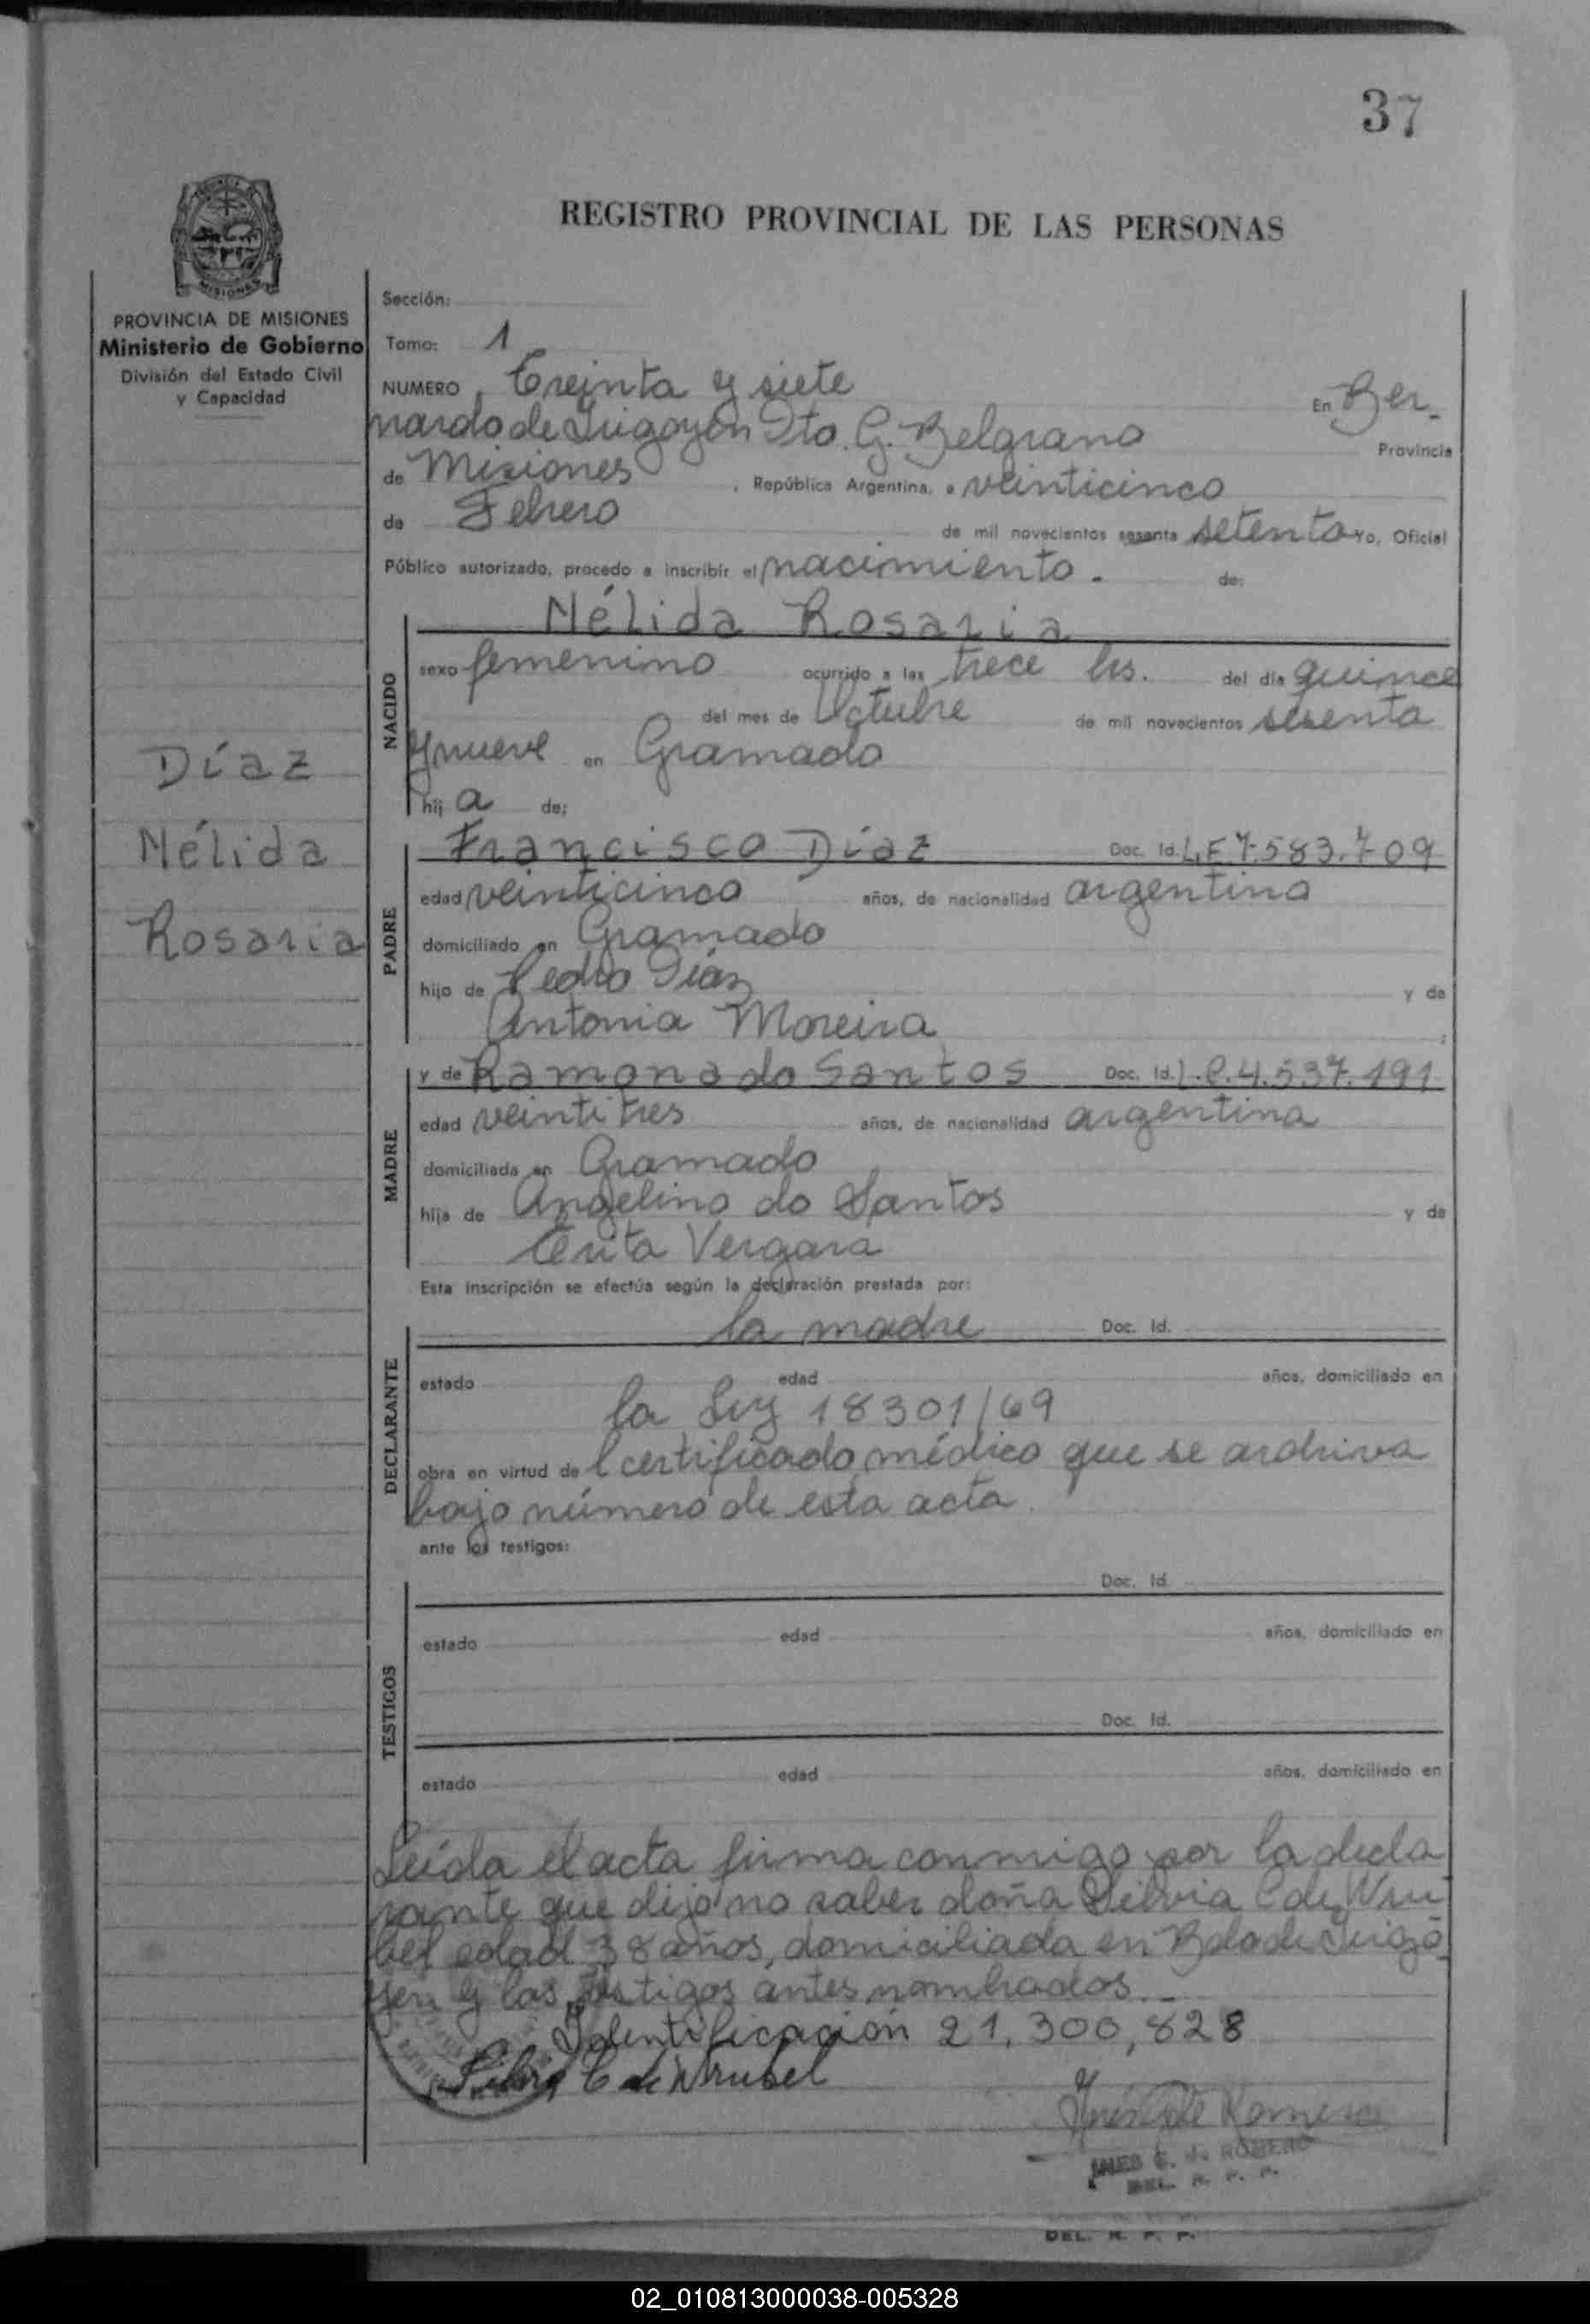 37
REGISTRO PROVINCIAL DE LAS PERSONAS
MISIONES
PROVINCIA DE MISIONES
Ministerio de Gobierno
División del Estado Civil
y Capacidad
Díaz
Nélida
Rosaria
Sección:
Tomo: 1
NUMERO Treinta y siete En Ber-
nardo de Irigoyen Dto. G. Belgrano Provincia
de Misiones, República Argentina, a veinticinco
de Febrero de mil novecientos sesenta setenta Yo, Oficial
Público autorizado, procedo a inscribir el nacimiento. de:
NACIDO
Nélida Rosaria
sexo femenino ocurrido a las trece hs. del día quince
del mes de Octubre de mil novecientos sesenta
y nueve en Gramado
hij a de:
PADRE
Francisco Díaz Doc. Id. L.E 7.583.709
edad veinticinco años, de nacionalidad argentina
domiciliado en Gramado
hijo de Pedro Díaz y de
Antonia Moreira
MADRE
y de Ramona do Santos Doc. Id. L.C.4.537.191
edad veintitres años, de nacionalidad argentina
domiciliada en Gramado
hija de Angelino do Santos y de
Vergara
Esta inscripción se efectúa según la declaración prestada por:
DECLARANTE
la madre Doc. Id.
estado edad años, domiciliado en
la Ley 18301/69
obra en virtud de l certificado médico que se archiva
bajo número de esta acta.
ante los testigos:
TESTIGOS
Doc. Id.
estado edad años, domiciliado en
Doc. Id.
estado edad años, domiciliado en
Leída el acta firma conmigo por la decla
rante que dijo no saber doña Silvia C de Wru
bel edad 38 años, domiciliada en Bdo de Irigo
yen y los testigos antes nombrados.-
Identificación 21,300,828
Silvia C de Wrubel
Inés C de Romero
INES C. de ROMERO
DEL. R. P. P.
DEL. R. P. P.
02_010813000038-005328